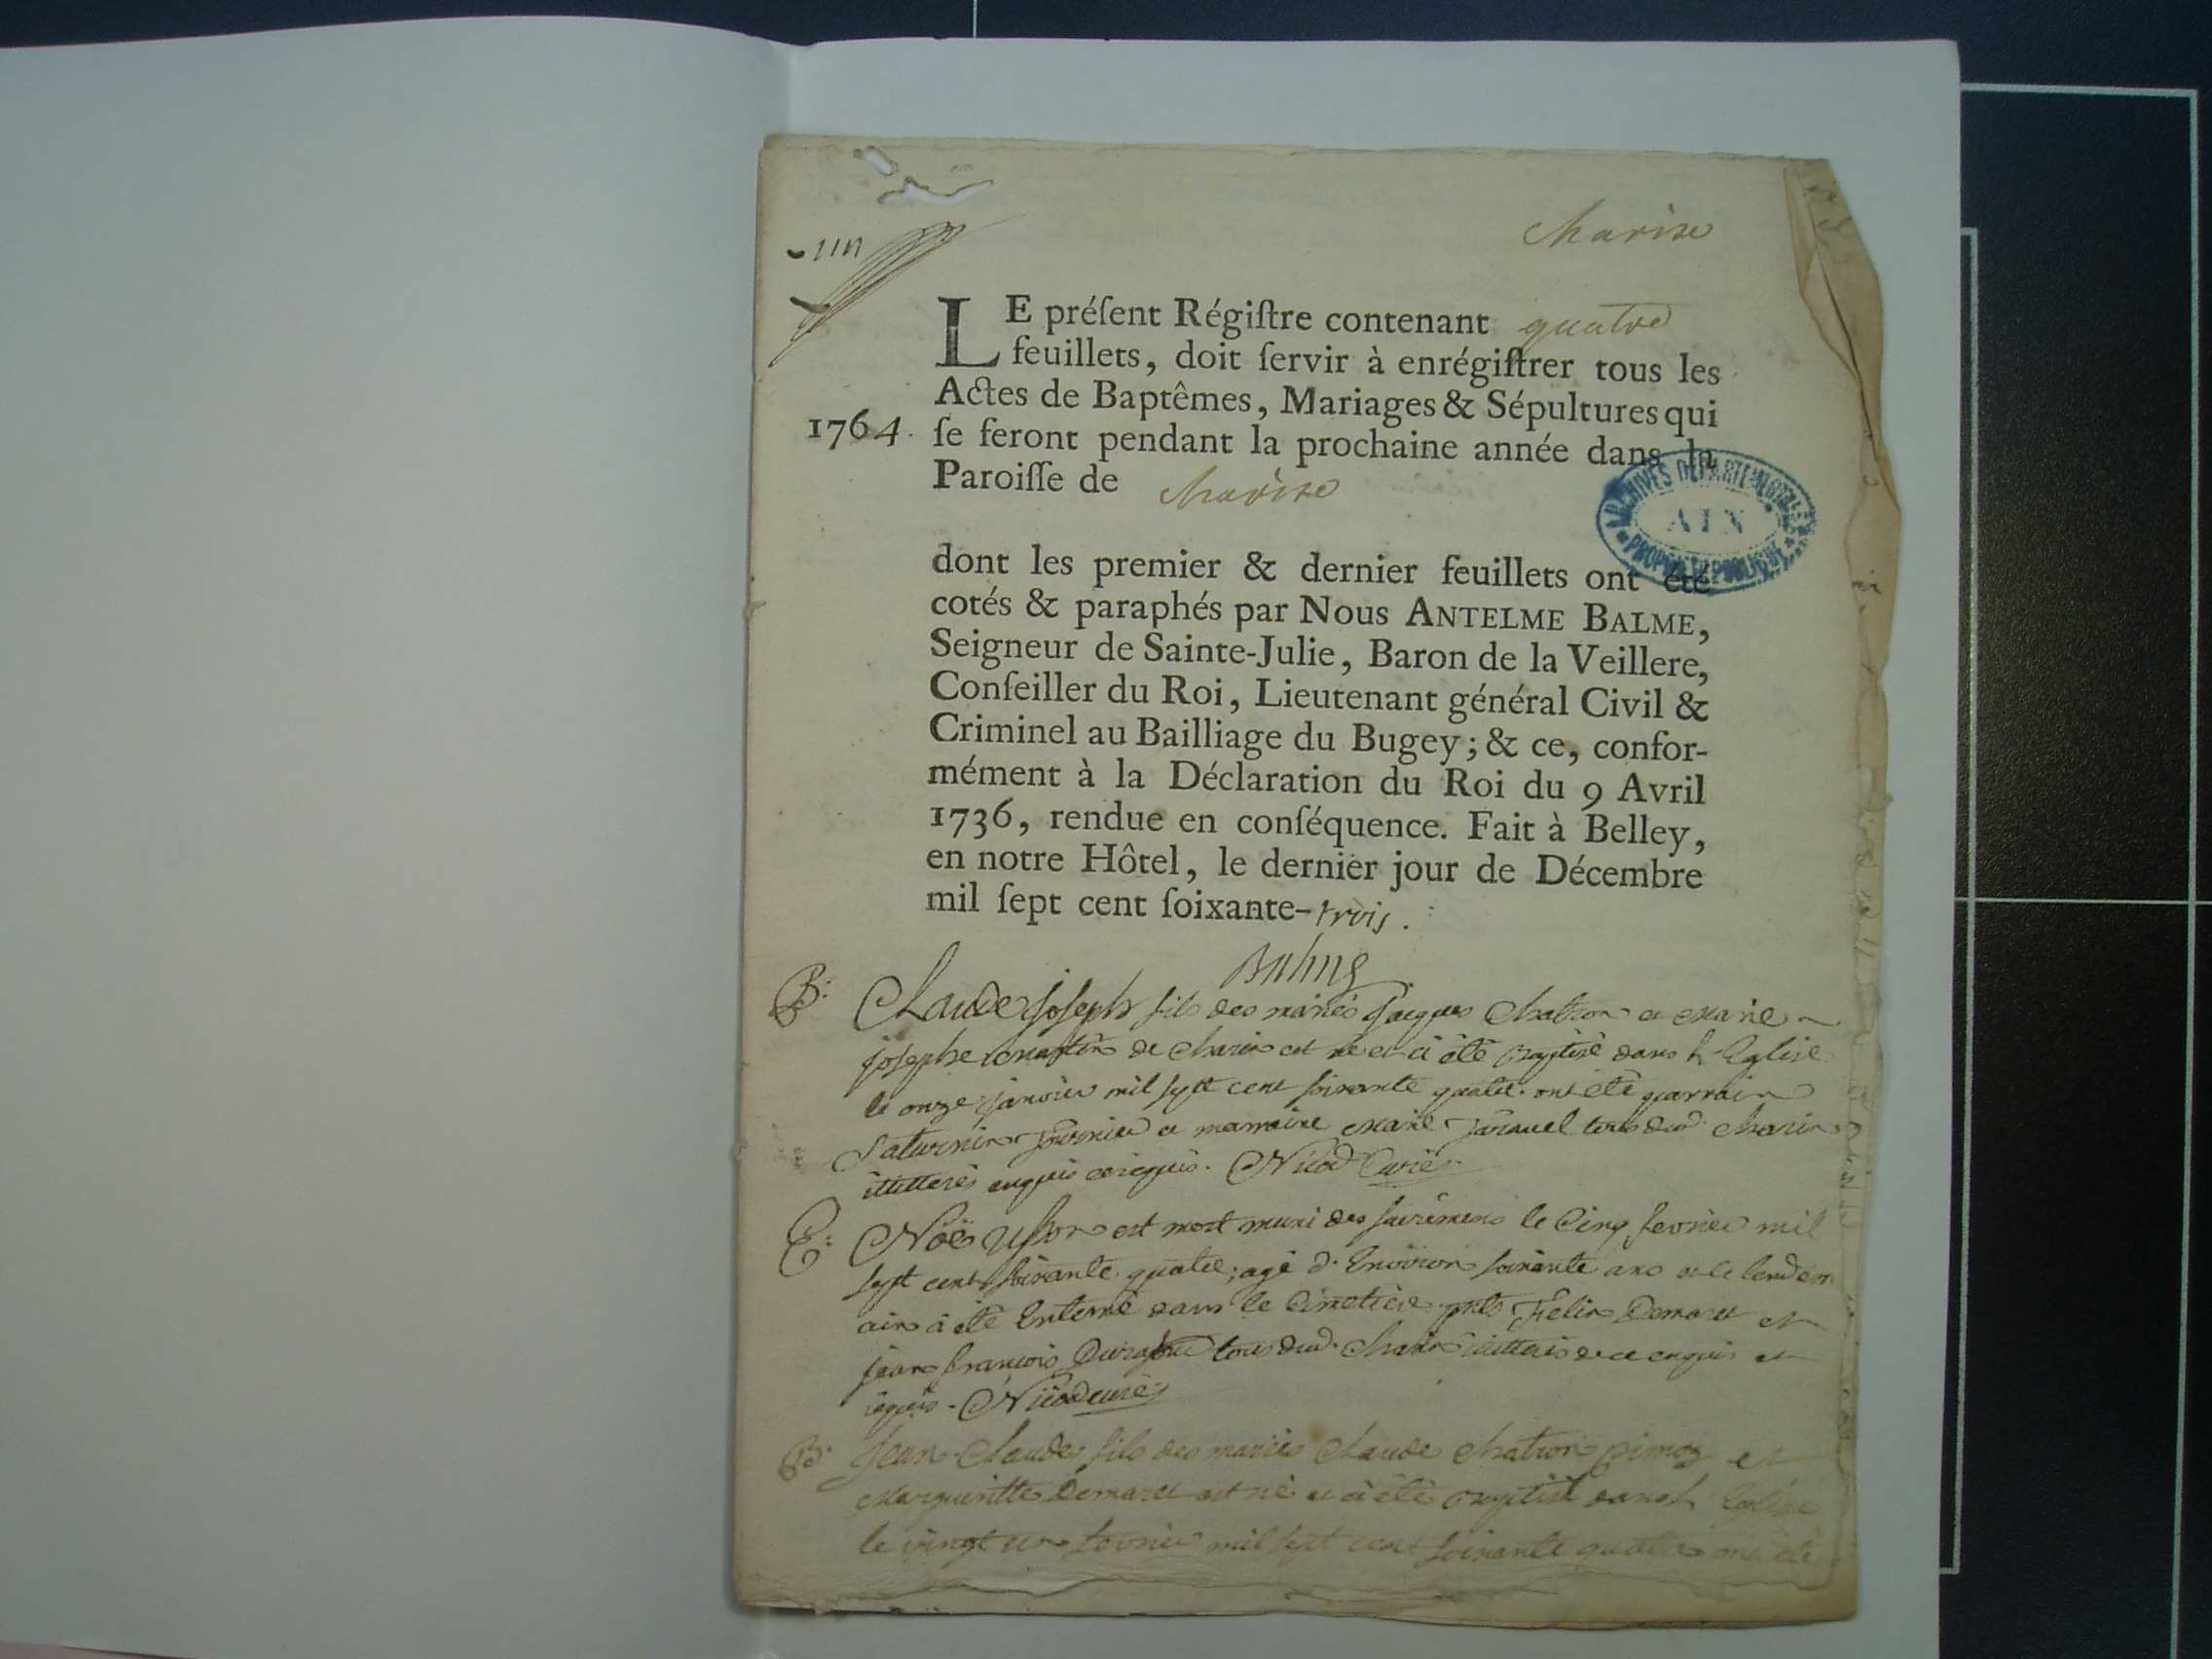 Charix
LE préſent Régiſtre contenant quatre
feuillets, doit ſervir à enrégiſtrer tous les
Actes de Baptêmes, Mariages & Sépultures qui
1764. ſe feront pendant la prochaine année dans la
Paroiſſe de Charix
ARCHIVES DÉPARTEMENTALES
AIN
PROPRIÉTÉ PUBLIQUE
dont les premier & dernier feuillets ont été
cotés & paraphés par Nous ANTELME BALME,
Seigneur de Sainte-Julie, Baron de la Veillere,
Conſeiller du Roi, Lieutenant général Civil &
Criminel au Bailliage du Bugey; & ce, confor-
mément à la Déclaration du Roi du 9 Avril
1736, rendue en conſéquence. Fait à Belley,
en notre Hôtel, le dernier jour de Décembre
mil ſept cent ſoixante-trois.
Balme
B: Claude joseph fils des mariés jacques Chatron et marie
josephe martin de Charix est né et à été baptisé dans l'Eglise
le onze janvier mil sept cent soixante quatre. ont été parrain
Saturnin et marraine marie tous dud. Charix
illitterés enquis et requis. Nicod Curé
E: Noë est mort muni des sacremens le Cinq fevrier mil
sept cent soixante quatre; agé d'Environ soixante ans et le lendem
ain à été Enterré dans le Cimetiere pnts Felix Demaret et
jean françois tous dud. Charix illitterés de ce enquis et
requis. Nicod curé
B. Jean Claude fils des mariés Claude Chatron et
Margueritte Demaret est né et à été baptisé dans l'Eglise
le vingt un fevrier mil sept cent soixante quatre ont été